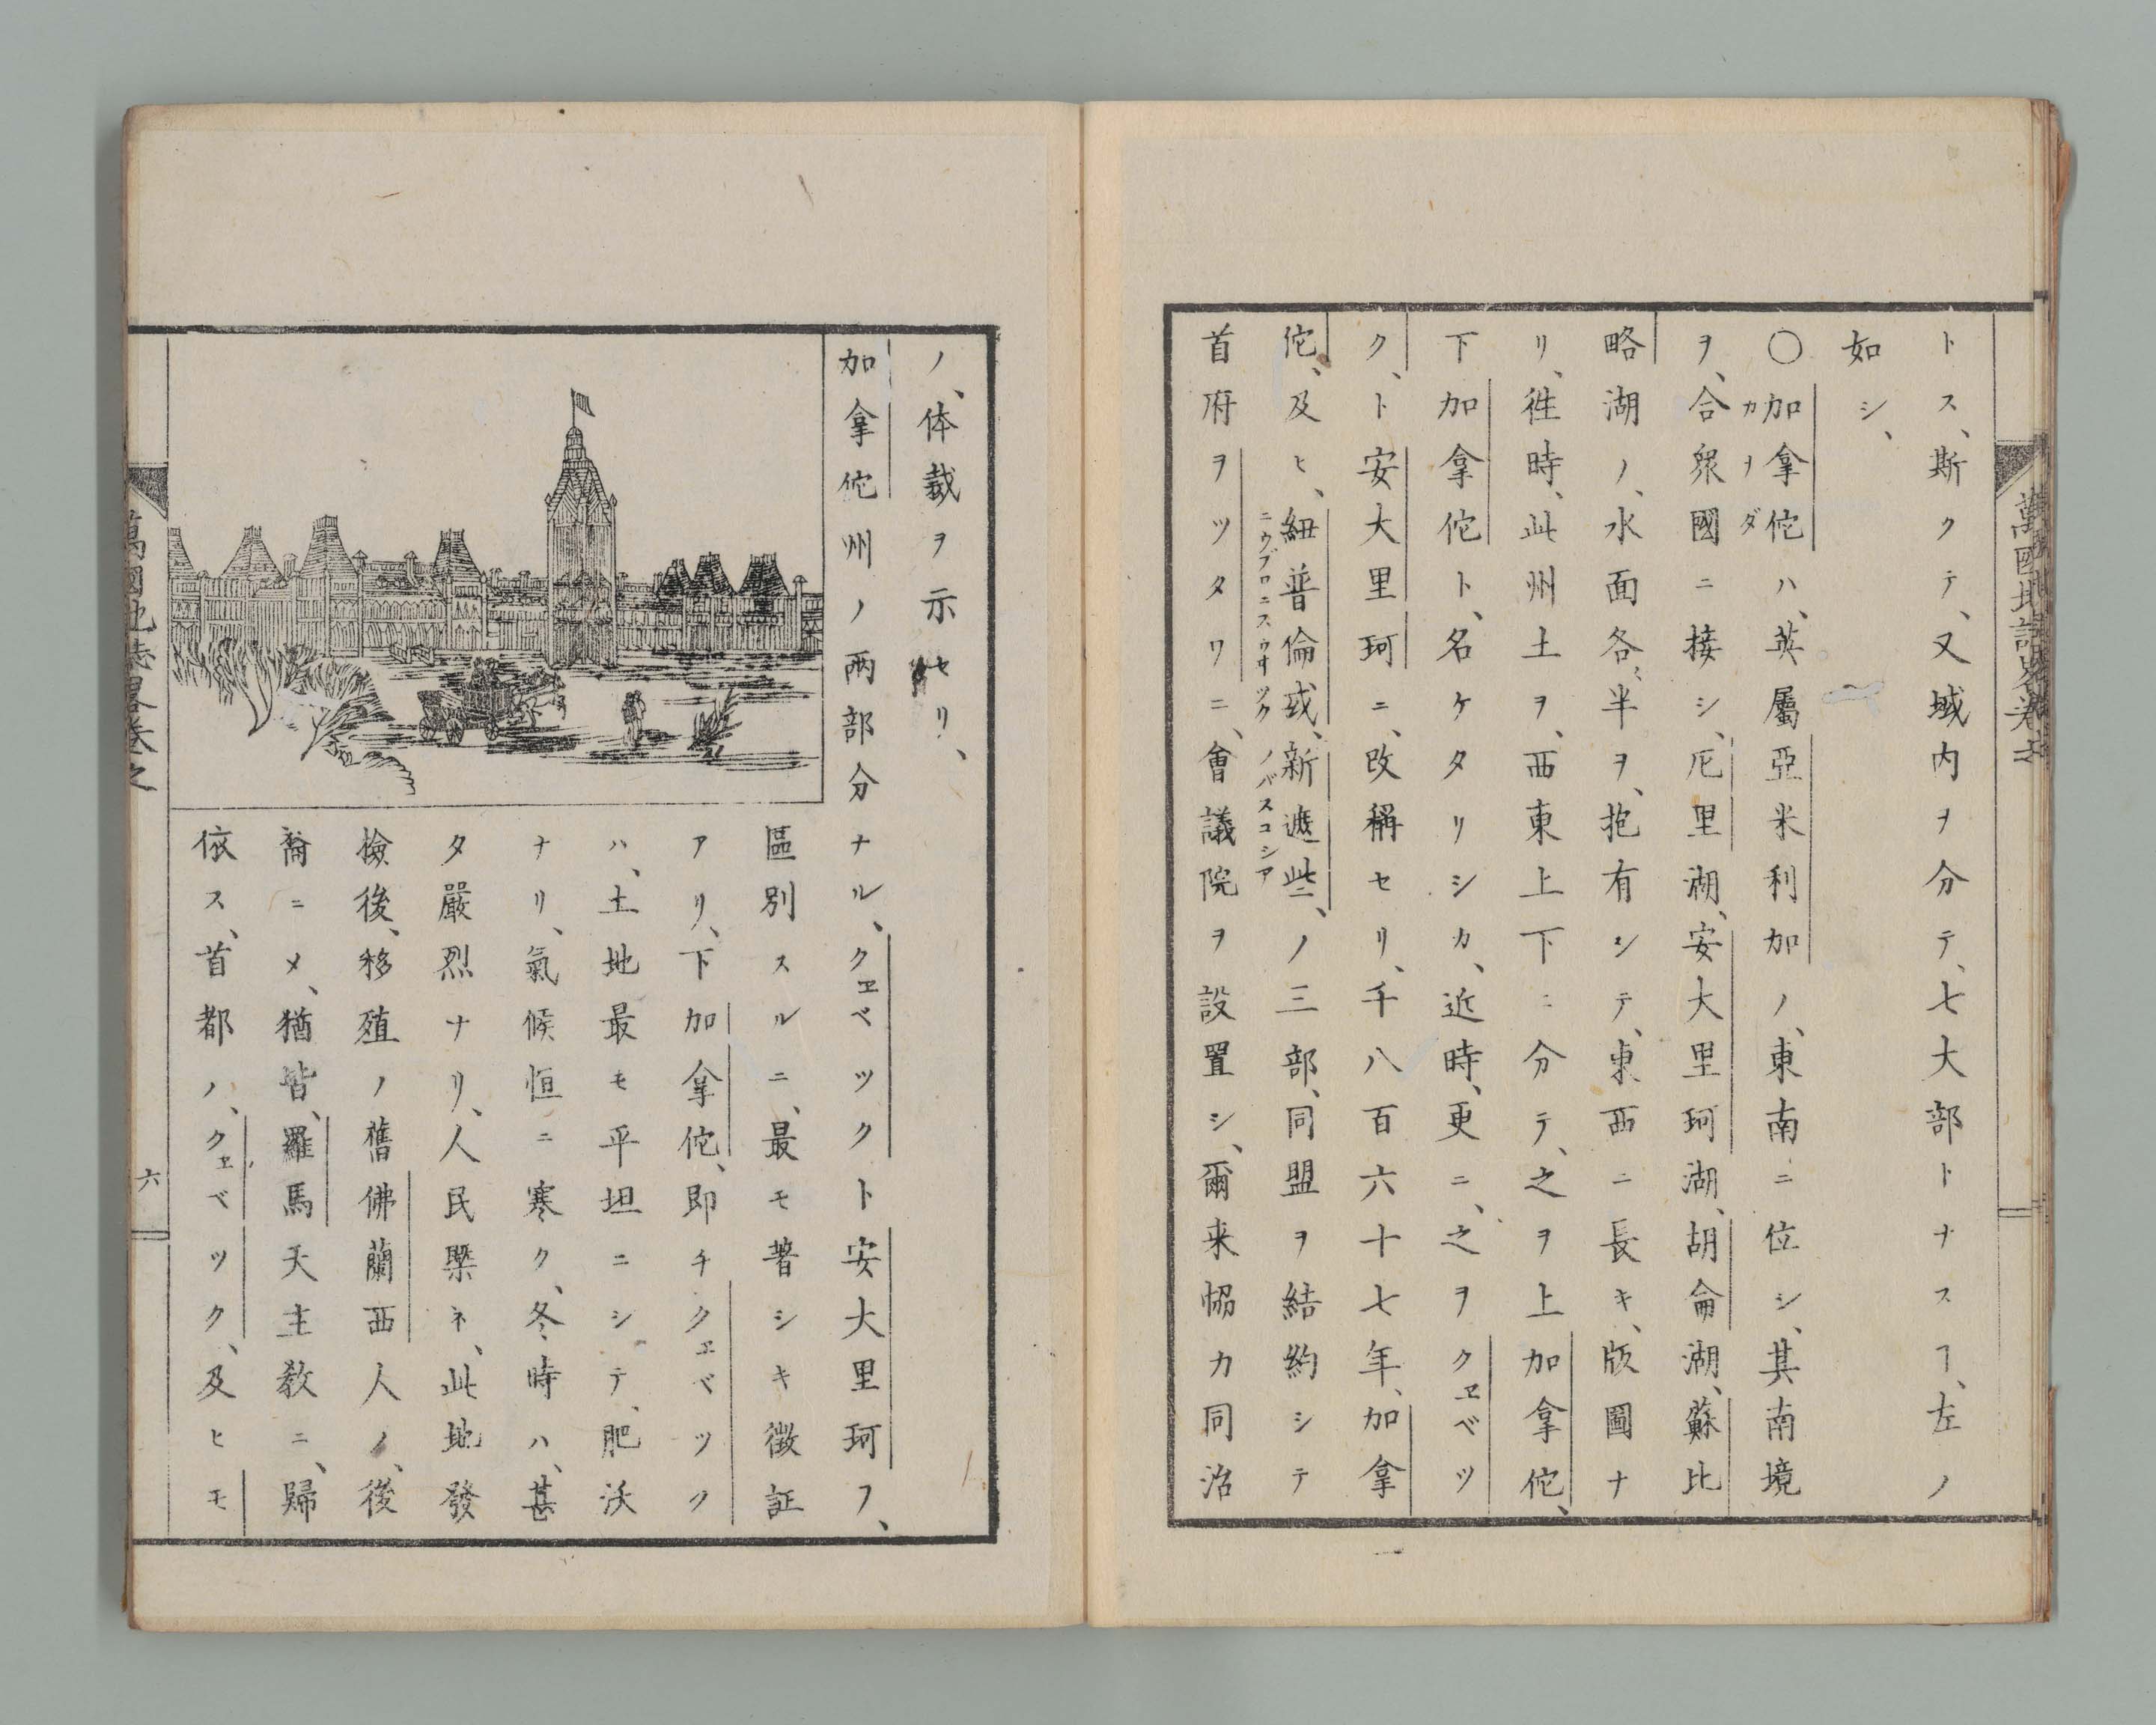 トス、斯クテ、又域内ヲ分テ、七大部トナスヿ、左ノ
如シ、
○加拿佗ハ、英屬亞米利加ノ、東南ニ位シ、其南境
カヲダ
ヲ、合衆國ニ接シ、厄里湖、安大里珂湖、胡侖湖、蘇比
略湖ノ、水面各〻半ヲ、抱有シテ、東西ニ長キ、版圖ナ
リ、徃時、此州土ヲ、西東上下ニ分テ、之ヲ上加拿佗、
下加拿佗ト、名ケタリシカ、近時、更ニ、之ヲクヱベツ
ク、ト安大里珂ニ、改稱セリ、千八百六十七年、加拿
佗、及ヒ、紐普倫㦯、新遮些、ノ三部、同盟ヲ結約シテ
ニウブロニスウオツク ノバスコシア
首府ヲツタワニ、會議院ヲ設置シ、爾来恊力同治
萬國地誌畧卷之
ノ、体裁ヲ示セリ、
加拿佗州ノ兩部分ナル、クヱベツクト安大里珂フ、
區別スルニ、最モ著シキ徴証
アリ、下加拿佗、即チクヱベツク
ハ、土地最モ平坦ニシテ、肥沃
ナリ、氣候恒ニ寒ク、冬時ハ、甚
タ嚴烈ナリ、人民槩ネ、此地發
撿後、移殖ノ舊佛蘭西人ノ、後
裔ニメ、猶皆、羅馬天主教ニ、歸
依ス、首都ノ、クヱベツク、及ヒモ
萬國地誌畧卷之
六